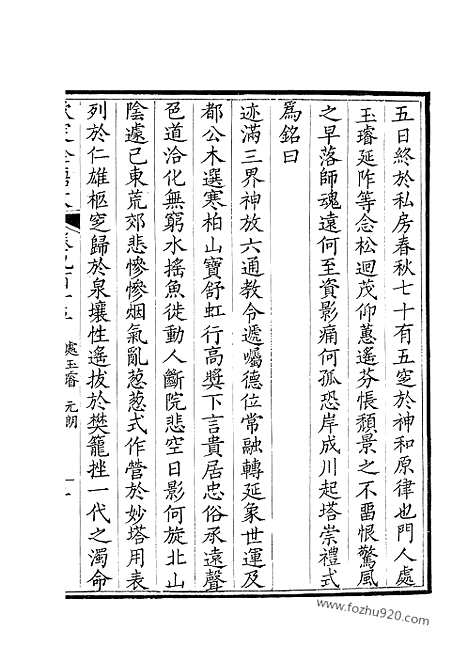 五日終於私房春秋七十有五窆於神和原律也門人處
玉璿延阼等念松迴茂仰蕙遙芬悵頹景之不畱恨驚風
之早落師魂遠何至資影痛何孤恐岸成川起塔崇禮式
爲銘曰
迹滿三界神放六通教令遞囑德位常融轉延象世運及
都公木選寒柏山寶舒虹行高獎下言貴居忠俗承遠聲
邑道洽化無窮水搖魚徙動人斷院悲空日影何旋北山
陰遽已東荒郊悲慘慘烟氣亂葱葱式作營於妙塔用表
列於仁雄柩窆歸於泉壤性遙拔於樊籠挫一代之濁命
處玉璿 元朗
www.fozhu920.com